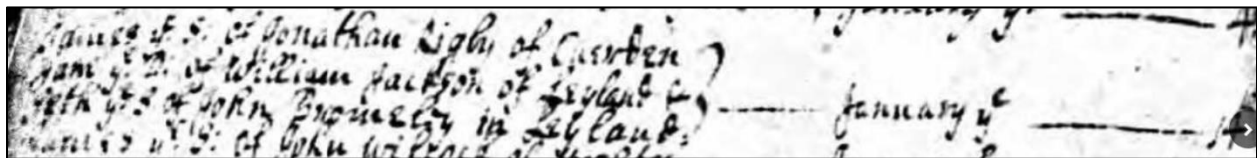 January ye
James ye S: of Jonathan Rigby of Cuerden
Jam ye D: of William Jackson of Leyland &
Seth ye S of John Bromeley in Leyland: January ye
James ye S: of John